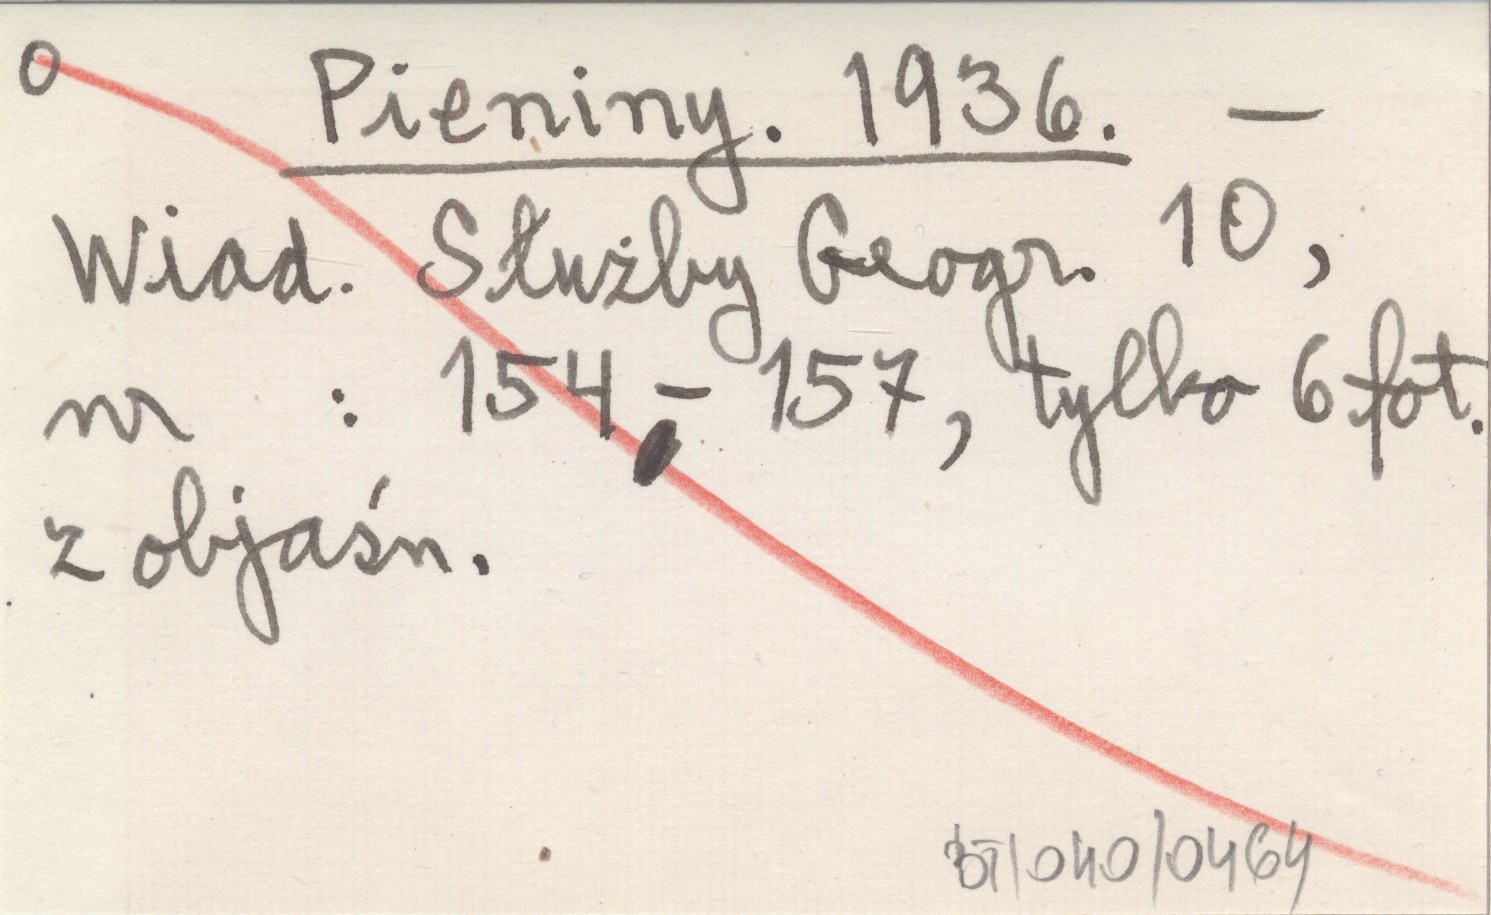 O Pieniny. 1936. —
Wiad. Służby Geogr. 10,
nr : 154-157, tylko 6 fot.
z objaśn.
BT/040/0464